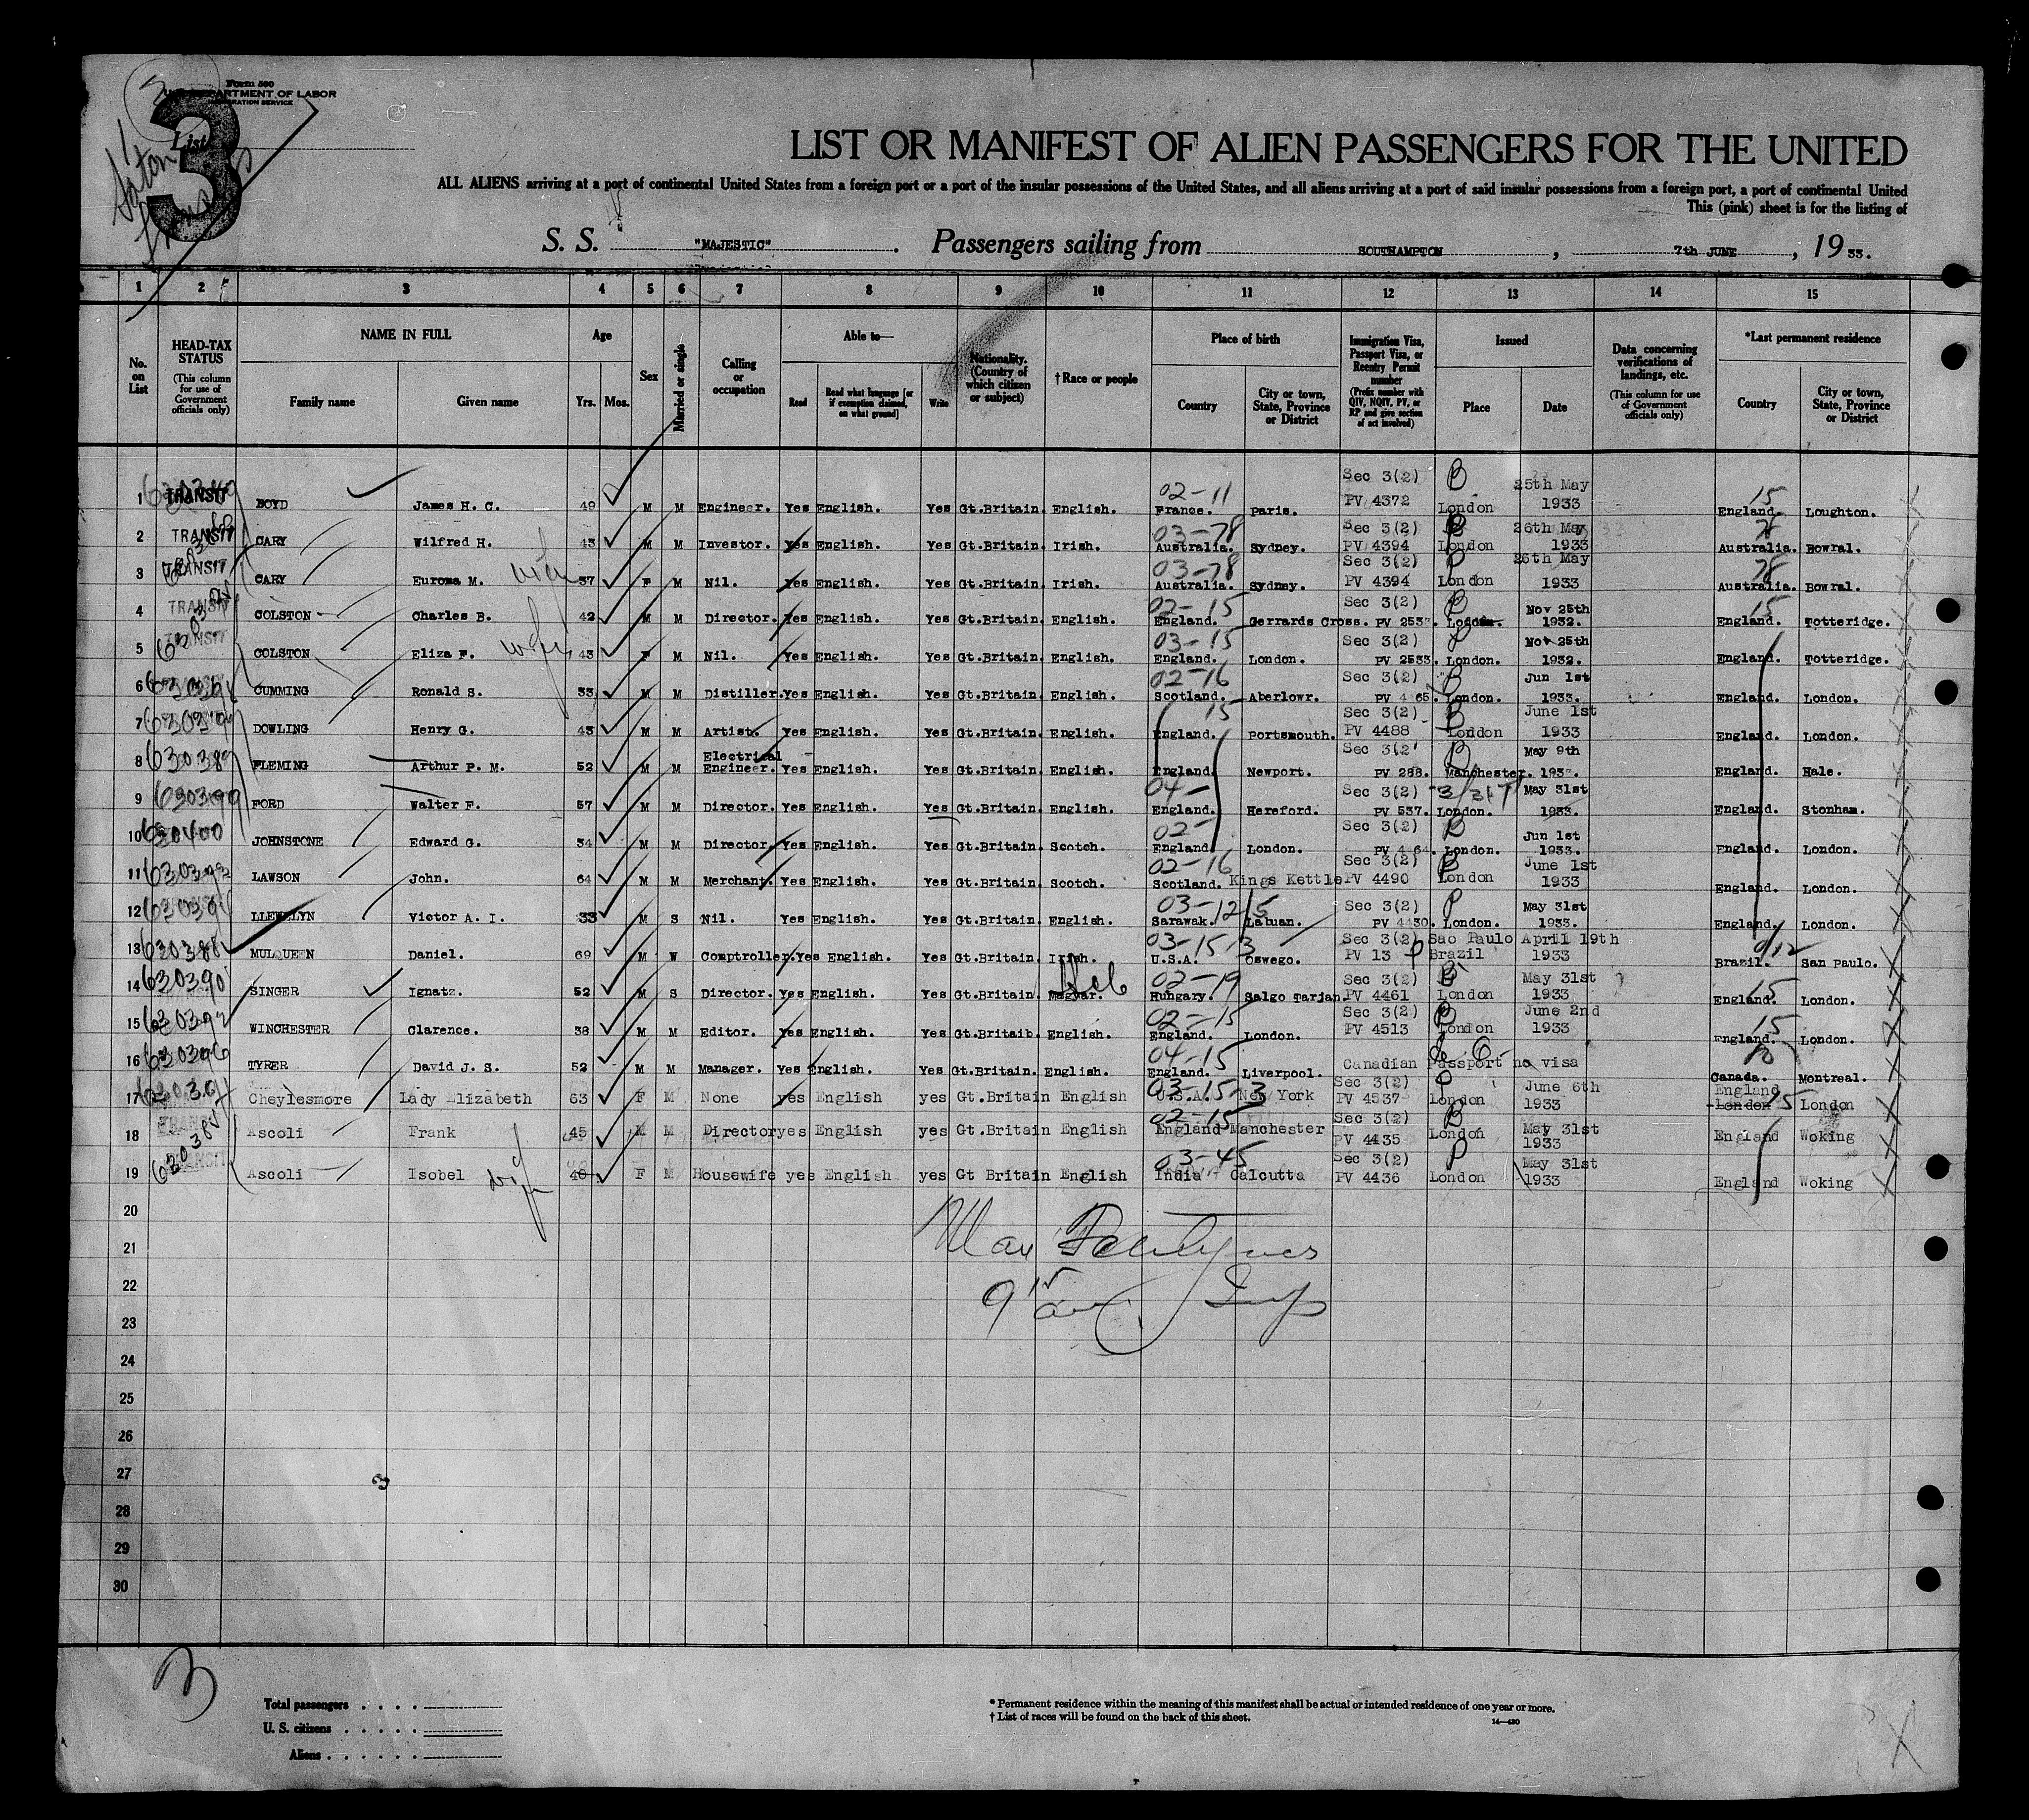 Form 500
DEPARTMENT OF LABOR
IMMIGRATION SERVICE
List 3
LIST OR MANIFEST OF ALIEN PASSENGERS FOR THE UNITED
ALL ALIENS arriving at a port of continental United States from a foreign port or a port of the insular possessions of the United States, and all aliens arriving at a port of said insular possessions from a foreign port, a port of continental United
This (pink) sheet is for the listing of
S. S. "MAJESTIC". Passengers sailing from SOUTHAMPTON, 7th JUNE, 19 33.
1 2 3 4 5 6 7 8 9 10 11 12 13 14 15
No. on List
HEAD-TAX STATUS (This column for use of Government officials only)
NAME IN FULL
Family name Given name
Age
Yrs. Mos.
Sex
Married or single
Calling or occupation
Able to—
Read Read what language [or if exemption claimed, on what ground] Write
Nationality. (Country of which citizen or subject)
†Race or people
Place of birth
Country City or town, State, Province or District
Immigration Visa, Passport Visa, or Reentry Permit number (Prefix number with QIV, NQIV, PV, or RP and give section of act involved)
Issued
Place Date
Data concerning verifications of landings, etc. (This column for use of Government officials only)
*Last permanent residence
Country City or town, State, Province or District
1 TRANSIT BOYD James H. C. 49 M M Engineer. Yes English. Yes Gt.Britain. English. 02-11 France. Paris. Sec 3(2) PV 4372 London 25th May 1933 15 England. Loughton.
2 TRANSIT CARY Wilfred H. 43 M M Investor. yes English. Yes Gt.Britain. Irish. 03-78 Australia. Sydney. Sec 3(2) PV 4394 London 26th May 1933 78 Australia. Bowral.
3 TRANSIT CARY Euroma M. wife 37 F M Nil. Yes English. Yes Gt.Britain. Irish. 03-78 Australia. Sydney. Sec 3(2) PV 4394 London 26th May 1933 78 Australia. Bowral.
4 TRANSIT COLSTON Charles B. 42 M M Director. Yes English. Yes Gt.Britain. English. 02-15 England. Gerrards Cross. Sec 3(2) PV 2533. London. Nov 25th 1932. 15 England. Totteridge.
5 TRANSIT COLSTON Eliza F. wife 43 F M Nil. Yes English. Yes Gt.Britain. English. 03-15 England. London. Sec 3(2) PV 2533. London. Nov 25th 1932. England. Totteridge.
6 CUMMING Ronald S. 33 M M Distiller. Yes English. Yes Gt.Britain. English. 02-16 Scotland. Aberlowr. Sec 3(2) PV 4465. London. Jun 1st 1933. England. London.
7 DOWLING Henry G. 43 M M Artist. Yes English. Yes Gt.Britain. English. 15 England. Portsmouth. Sec 3(2) PV 4488 London June 1st 1933 England. London.
8 630389 FLEMING Arthur P. M. 52 M M Electrical Engineer. Yes English. Yes Gt.Britain. English. England. Newport. Sec 3(2) PV 288. Manchester. May 9th 1933. England. Hale.
9 630399 FORD Walter F. 57 M M Director. Yes English. Yes Gt.Britain. English. 04- England. Hereford. Sec 3(2) PV 537. London. May 31st 1933. England. Stonham.
10 630400 JOHNSTONE Edward G. 34 M M Director. Yes English. Yes Gt.Britain. Scotch. 02- England. London. Sec 3(2) PV 4464. London. Jun 1st 1933. England. London.
11 630393 LAWSON John. 64 M M Merchant. Yes English. Yes Gt.Britain. Scotch. 02-16 Scotland. Kings Kettle PV 4490 Sec 3(2) London June 1st 1933 England. London.
12 LLEWELYN Victor A. I. 33 M S Nil. Yes English. Yes Gt.Britain. English. 03-12 Sarawak. Labuan. Sec 3(2) PV 4430. London. May 31st 1933. England. London.
13 MULQUEEN Daniel. 69 M W Comptroller. Yes English. Yes Gt.Britain. Irish. 03-15-3 U.S.A. Oswego. Sec 3(2) PV 13 Sao Paulo Brazil April 19th 1933 Brazil. San Paulo.
14 630390 SINGER Ignatz. 52 M S Director. Yes English. Yes Gt.Britain. Magyar. Heb 02-19 Hungary. Salgo Tarjan. Sec 3(2) PV 4461 London May 31st 1933 15 England. London.
15 WINCHESTER Clarence. 38 M M Editor. Yes English. Yes Gt.Britaib. English. 02-15 England. London. Sec 3(2) PV 4513 London June 2nd 1933 15 England. London.
16 630396 TYRER David J. S. 52 M M Manager. Yes English. Yes Gt.Britain. English. 04-15 England. Liverpool. Canadian Passport no visa Canada. Montreal.
17 Cheylesmore Lady Elizabeth 63 F M None yes English yes Gt.Britain English 03-15-3 U.S.A. New York Sec 3(2) PV 4537 London June 6th 1933 England London 15 London
18 TRANSIT Ascoli Frank 45 M M Director yes English yes Gt.Britain English 02-15 England Manchester Sec 3(2) PV 4435 London May 31st 1933 England Woking
19 TRANSIT Ascoli Isobel wife 40 F M Housewife yes English yes Gt Britain English 03-45 India Calcutta Sec 3(2) PV 4436 London May 31st 1933 England Woking
20
21
22
23
24
25
26
27
28
29
30
3
Total passengers
U. S. citizens
Aliens
* Permanent residence within the meaning of this manifest shall be actual or intended residence of one year or more.
† List of races will be found on the back of this sheet.
14—430